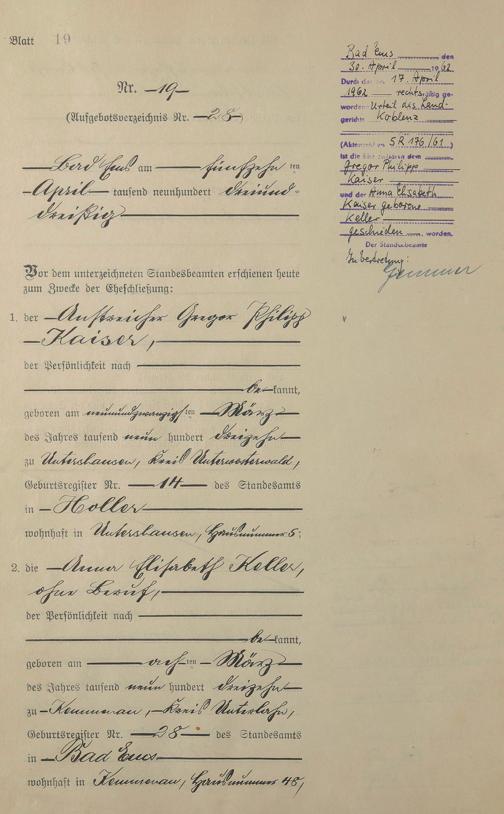 Blatt 19
Nr. 19
(Aufgebotsverzeichnis Nr. 28)
Bad Ems am fünfzehn ten
April tausend neunhundert dreiund-
dreißig
Vor dem unterzeichneten Standesbeamten erschienen heute
zum Zwecke der Eheschließung:
1. der Anstreicher Gregor Philipp
Kaiser,
der Persönlichkeit nach
be kannt,
geboren am neunundzwanzigsten März
des Jahres tausend neun hundert dreizehn
zu Untershausen, Kreis Unterwesterwald,
Geburtsregister Nr. 14 des Standesamts
in Holler
wohnhaft in Untershausen, Hausnummer 5;
2. die Anna Elisabeth Keller,
ohne Beruf,
der Persönlichkeit nach
be kannt,
geboren am ach ten März
des Jahres tausend neun hundert dreizehn
zu Kemmenau, Kreis Unterlahn,
Geburtsregister Nr. 28 des Standesamts
in Bad Ems
wohnhaft in Kemmenau, Hausnummer 48,
Bad Ems den
30. April 1962
Durch das am 17. April
1962 rechtskräftig ge-
wordene Urteil des Land-
gerichts Koblenz
(Aktenzeichen 5 R 176/61)
ist die Ehe zwischen dem
Gregor Philipp
Kaiser
und der Anna Elisabeth
Kaiser geborene
Keller
geschieden worden.
Der Standesbeamte
In Vertretung: